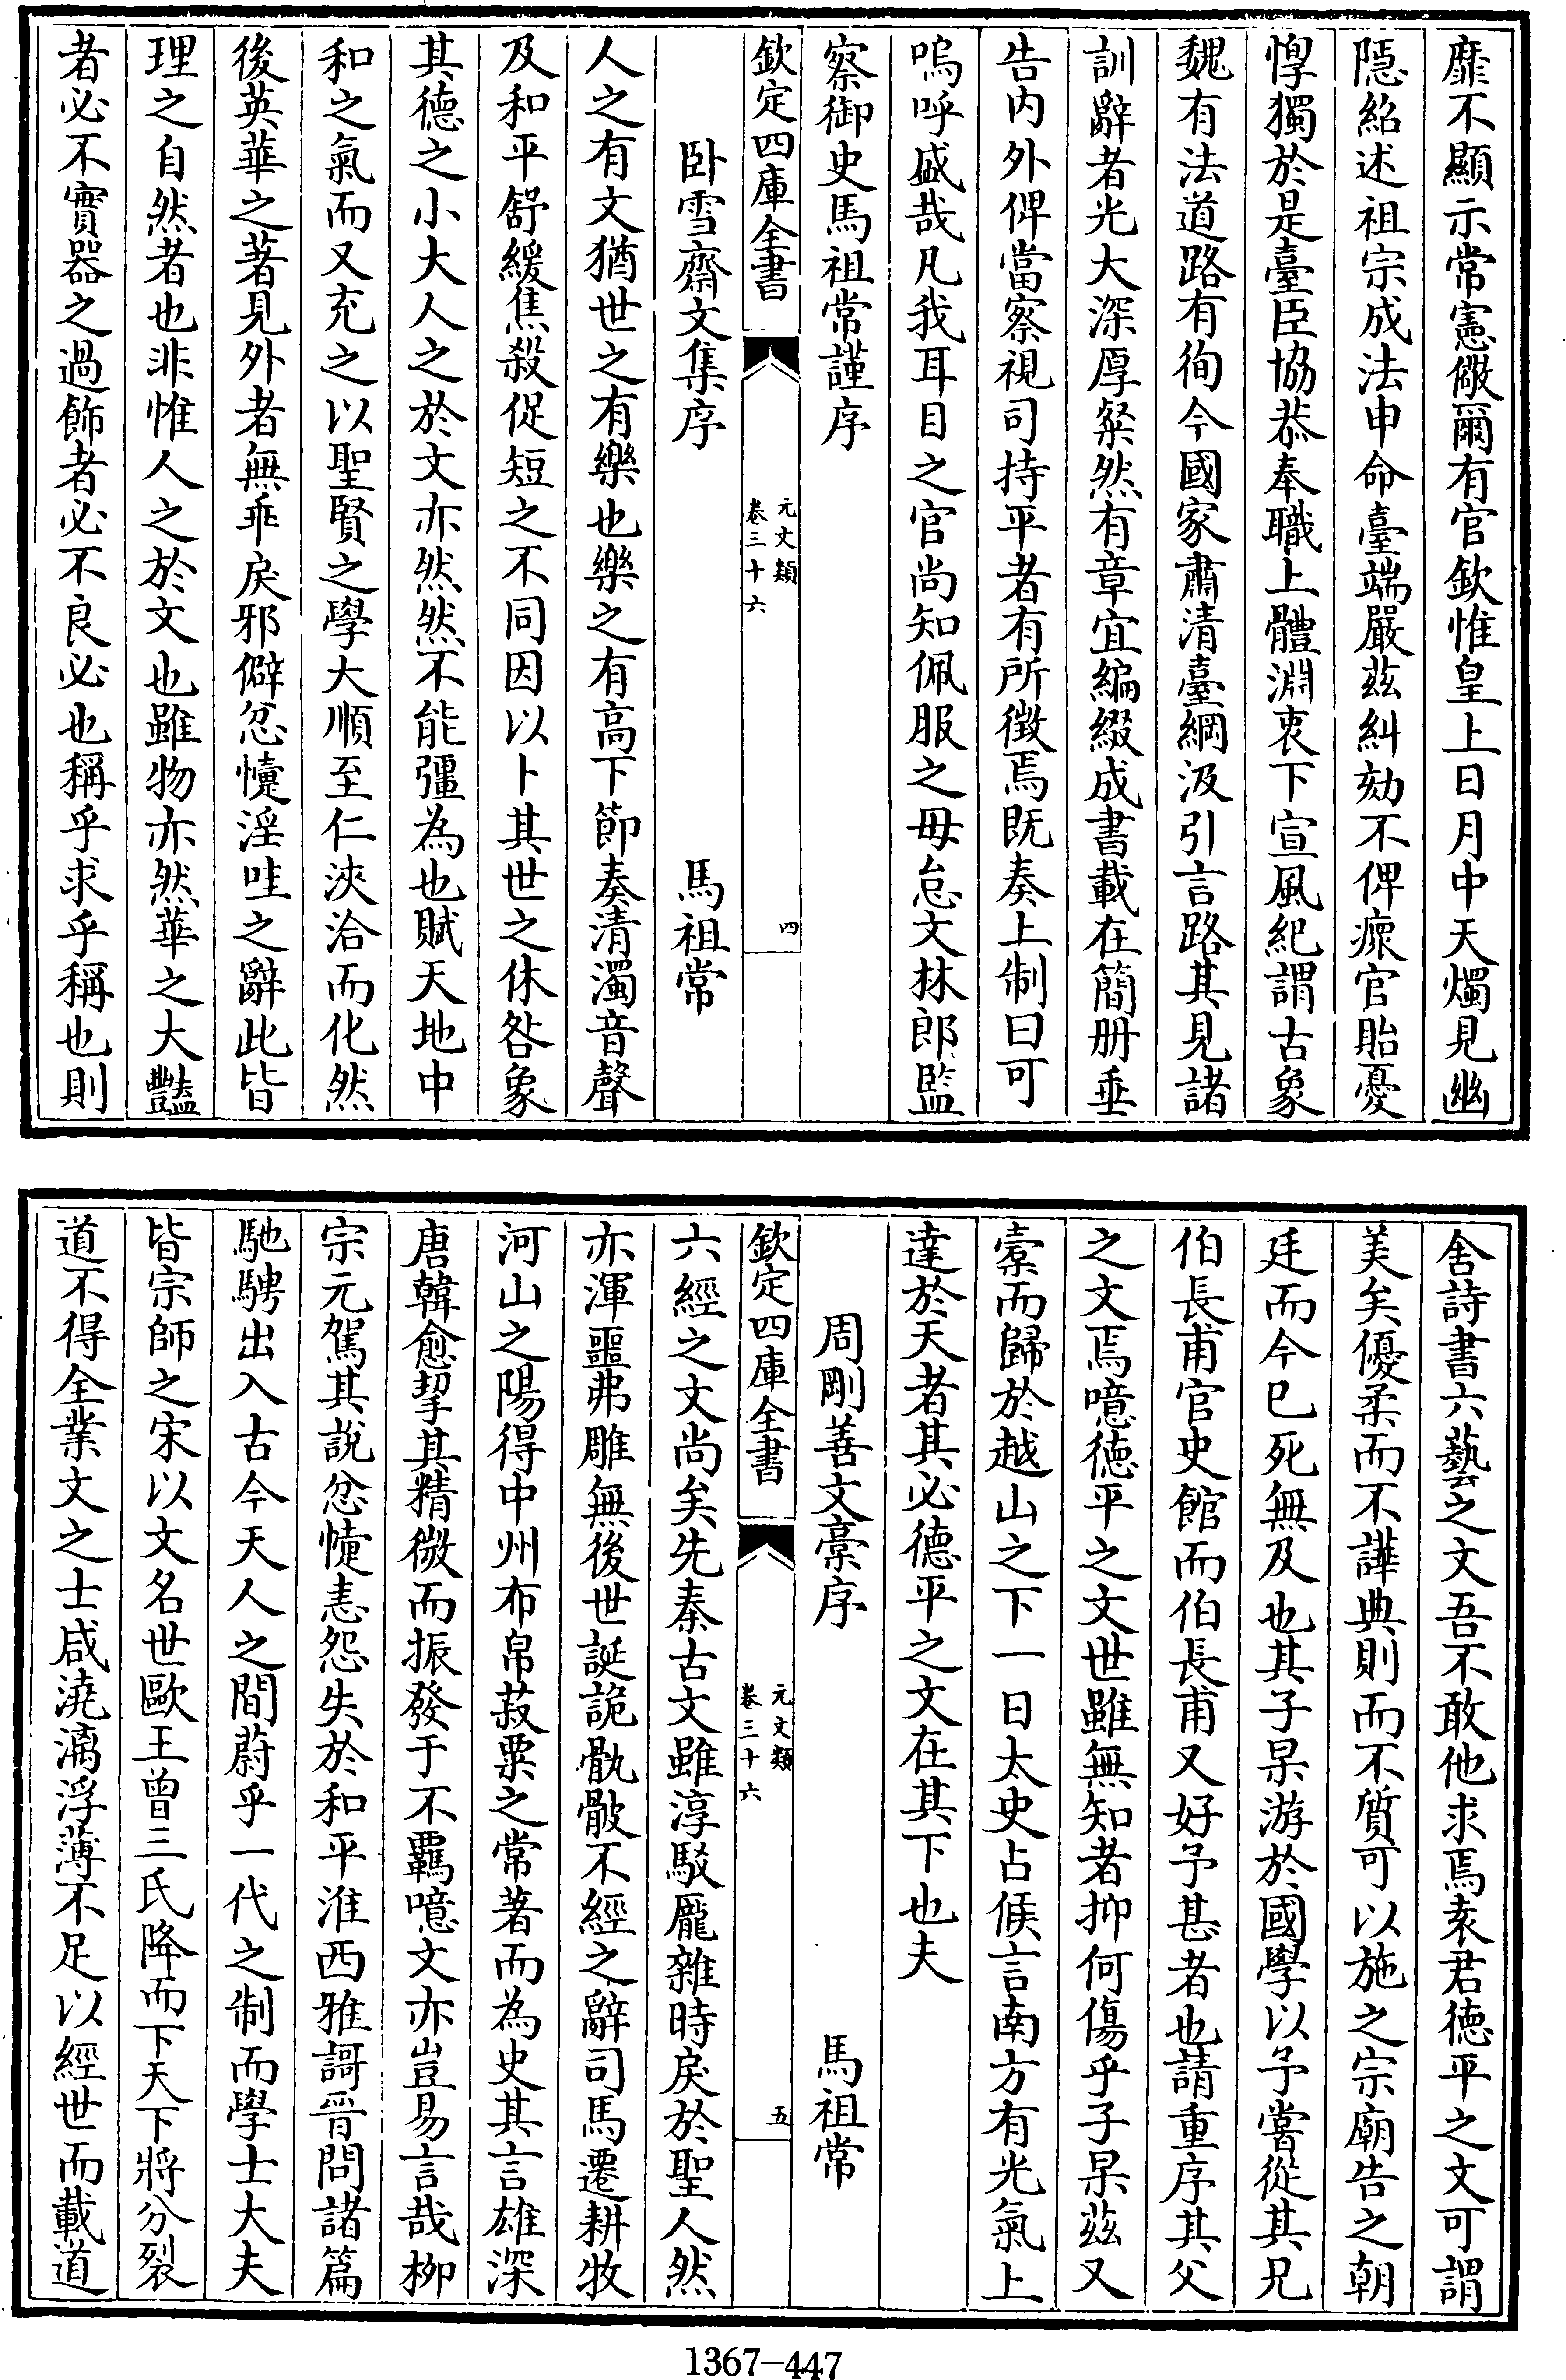 靡不顯示常憲儆爾有官欽惟皇上日月中天燭見幽
隱紹述祖宗成法申命臺端嚴茲糾劾不俾瘝官貽憂
惸獨於是臺臣協恭奉職上體淵衷下宣風紀謂古象
魏有法道路有徇今國家肅清臺綱汲引言路其見諸
訓辭者光大深厚粲然有章宜編綴成書載在簡冊垂
告内外俾當察視司持平者有所徴焉既奏上制曰可
嗚呼盛哉凡我耳目之官尚知佩服之毋怠文林郎監
察御史馬祖常謹序
欽定四庫全書
元文類
卷三十六
四
卧雪齋文集序
馬祖常
人之有文猶世之有樂也樂之有高下節奏清濁音聲
及和平舒緩焦殺促短之不同因以卜其世之休咎象
其德之小大人之於文亦然然不能彊為也賦天地中
和之氣而又充之以聖賢之學大順至仁浹洽而化然
後英華之著見外者無乖戾邪僻忿懥淫哇之辭此皆
理之自然者也非惟人之於文也雖物亦然華之大豔
者必不實器之過飾者必不良必也稱乎求乎稱也則
舍詩書六藝之文吾不敢他求焉袁君徳平之文可謂
美矣優柔而不譁典則而不質可以施之宗廟告之朝
廷而今已死無及也其子杲游於國學以予嘗從其兄
伯長甫官史館而伯長甫又好予甚者也請重序其父
之文焉噫徳平之文世雖無知者抑何傷乎子杲茲又
橐而歸於越山之下一日太史占候言南方有光氣上
達於天者其必德平之文在其下也夫
周剛善文藁序
馬祖常
欽定四庫全書
元文類
卷三十六
五
六經之文尚矣先秦古文雖淳駁厖雜時戾於聖人然
亦渾噩弗雕無後世誕詭骫骳不經之辭司馬遷耕牧
河山之陽得中州布帛菽粟之常著而為史其言雄深
唐韓愈挈其精微而振發于不羈噫文亦豈易言哉栁
宗元駕其說忿懥恚怨失於和平淮西雅謌晉問諸篇
馳騁出入古今天人之間蔚乎一代之制而學士大夫
皆宗師之宋以文名世歐王曾三氏降而下天下將分裂
道不得全業文之士咸澆漓浮薄不足以經世而載道
1367-447